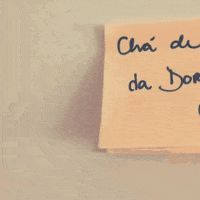 Chá de
da Dor